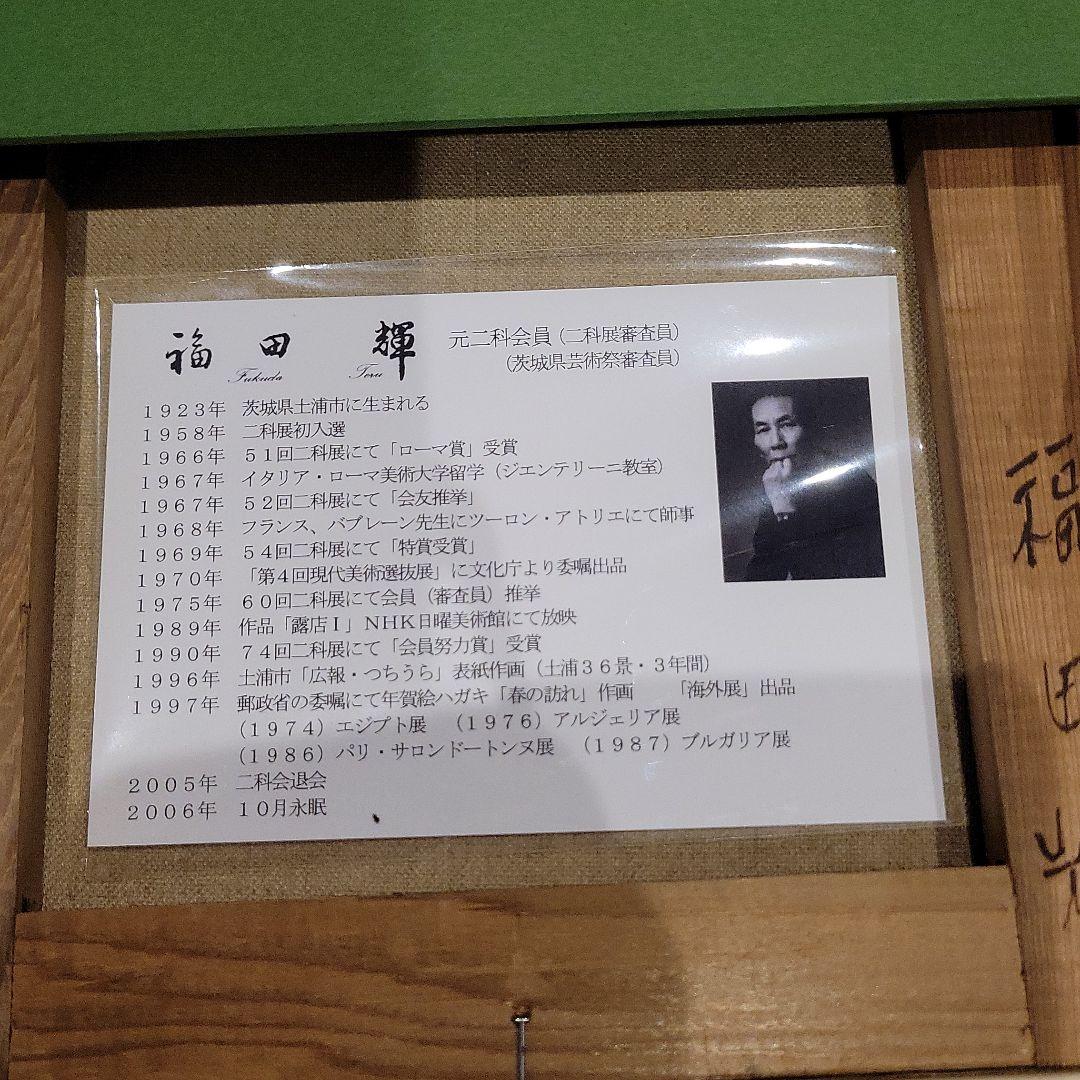 福田 輝 元二科会員（二科展審査員）
Fukuda Teru （茨城県芸術祭審査員）
１９２３年 茨城県土浦市に生まれる
１９５８年 二科展初入選
１９６６年 ５１回二科展にて「ローマ賞」受賞
１９６７年 イタリア・ローマ美術大学留学（ジエンテリーニ教室）
１９６７年 ５２回二科展にて「会友推挙」
１９６８年 フランス、バブレーン先生にツーロン・アトリエにて師事
１９６９年 ５４回二科展にて「特賞受賞」
１９７０年 「第４回現代美術選抜展」に文化庁より委嘱出品
１９７５年 ６０回二科展にて会員（審査員）推挙
１９８９年 作品「露店Ⅰ」ＮＨＫ日曜美術館にて放映
１９９０年 ７４回二科展にて「会員努力賞」受賞
１９９６年 土浦市「広報・つちうら」表紙作画（土浦３６景・３年間）
１９９７年 郵政省の委嘱にて年賀絵ハガキ「春の訪れ」作画 「海外展」出品
（１９７４）エジプト展 （１９７６）アルジェリア展
（１９８６）パリ・サロンドートンヌ展 （１９８７）ブルガリア展
２００５年 二科会退会
２００６年 １０月永眠
福田